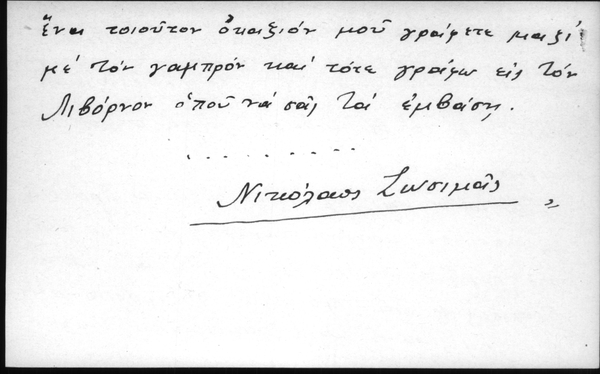 ἕνα τοιοῦτον ὀκαζιόν μοῦ γράφετε μαζί
μέ τόν γαμπρόν καί τότε γράφω εἰς τόν
Λιβόρνον ὁποῦ νά σᾶς τά ἐμβάσῃ.
. . . . . . . . .
Νικόλαος Ζωσιμᾶς „